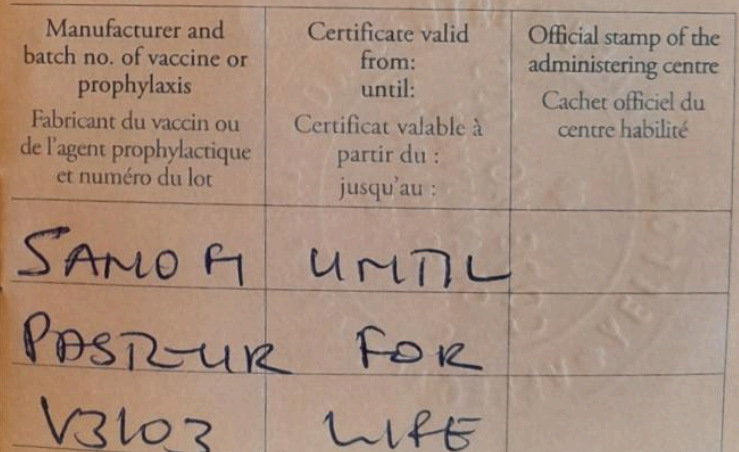 Manufacturer and
batch no. of vaccine or
prophylaxis
Fabricant du vaccin ou
de l'agent prophylactique
et numéro du lot
Certificate valid
from:
until:
Certificat valable à
partir du :
jusqu'au :
Official stamp of the
administering centre
Cachet officiel du
centre habilité
SANOFI UNTIL
PASTEUR FOR
V3103 LIFE
YELLO